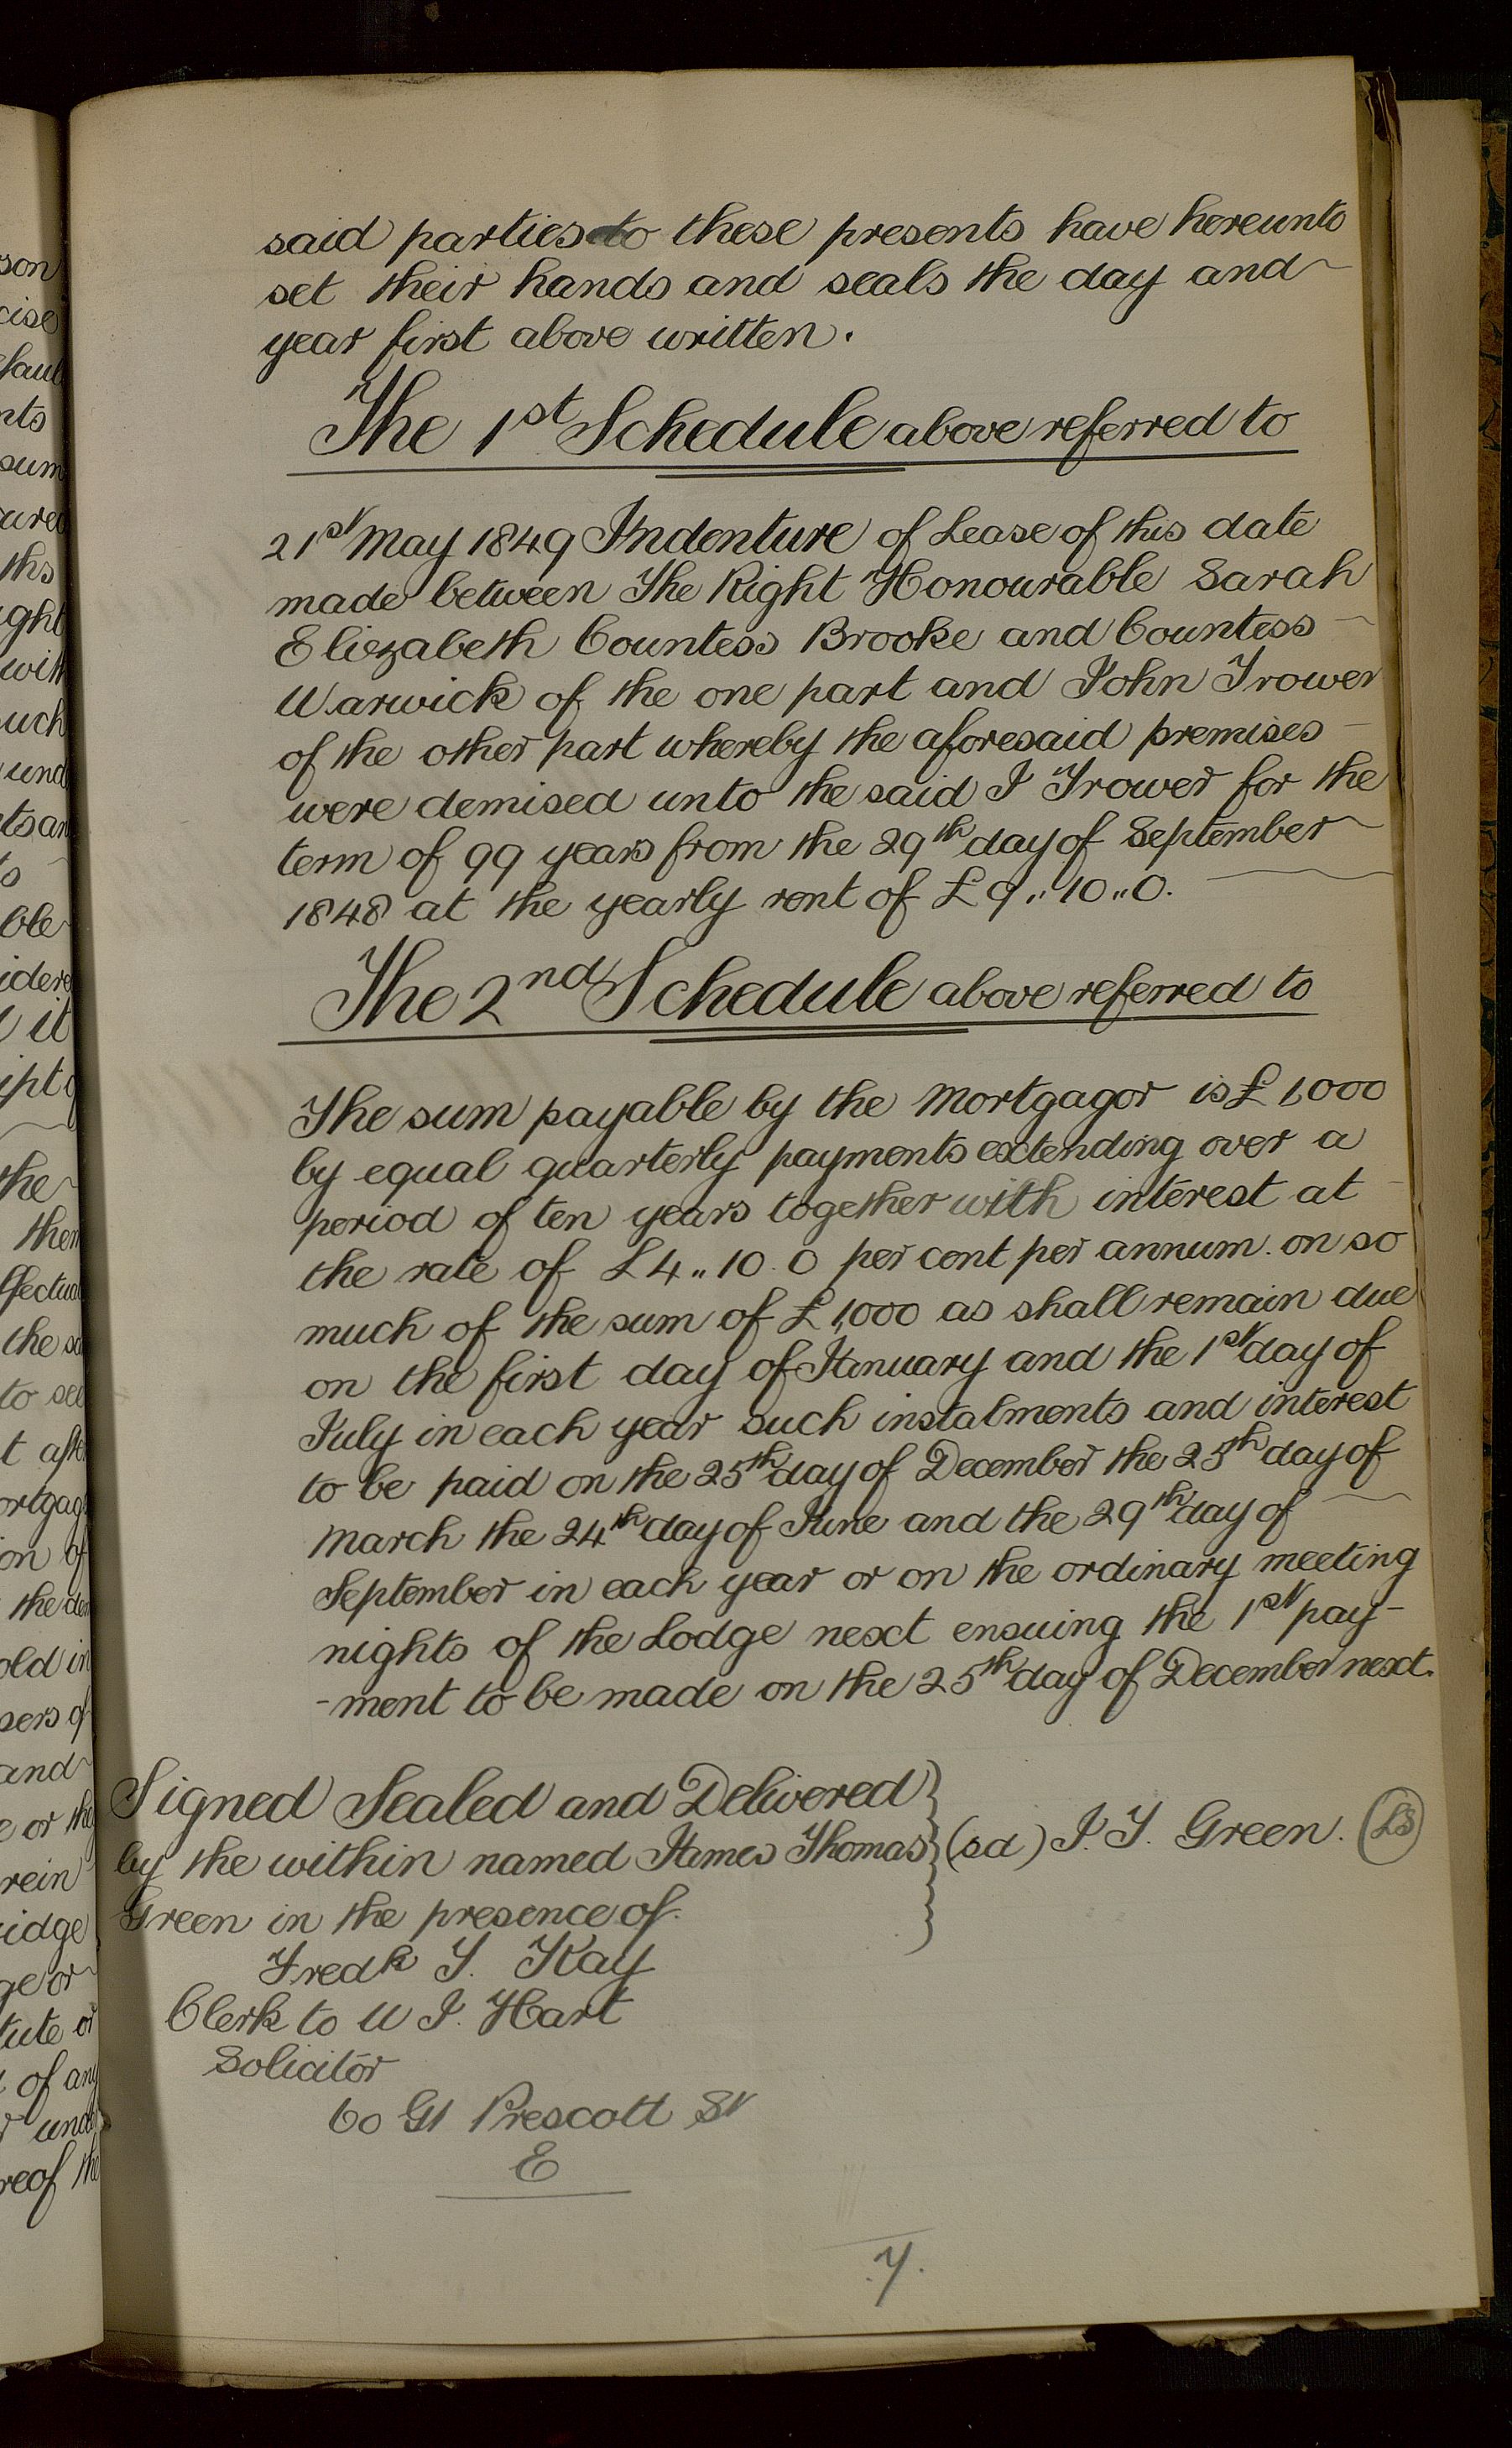 said parties to these presents have hereunto
set their hands and seals the day and
year first above written.
The 1st Schedule above referred to
21st May 1849 Indenture of Lease of this date
made between The Right Honourable Sarah
Eliezabeth Countess Brooke and Countess
Warwick of the one part and John Trower
of the other part whereby the aforesaid premises
were demised unto the said J Trower for the
term of 99 years from the 29th day of September
1848 at the yearly rent of £9,,10,,0.
The 2nd Schedule above referred to
The sum payable by the Mortgagor is £1,000
by equal quarterly payments extending over a
period of ten years together with interest at
the rate of £4,,10.0 per cent per annum. on so
much of the sum of £1,000 as shall remain due
on the first day of January and the 1st day of
July in each year such instalments and interest
to be paid on the 25th day of December the 25th day of
March the 24th day of June and the 29th day of
September in each year or on the ordinary meeting
nights of the Lodge next ensuing the 1st pay-
-ment to be made on the 25th day of December next.
Signed Sealed and Delivered
by the within named James Thomas (sd) J. T. Green. LS
Green in the presence of.
Fredk T. Kay
Clerk to W J. Hart
Solicitor
60 Gt Prescott St
E
7.
son
cise
faul
nts
sum
ured
ths
ght
with
uch
und
ts an
ts
ble
idere
it
ipt o
the
them
ffectual
the sa
to sell
t after
ortgag
on of
the de
old in
sers of
and
e or the
rein
idge
ge or
tute or
of any
r under
reof the